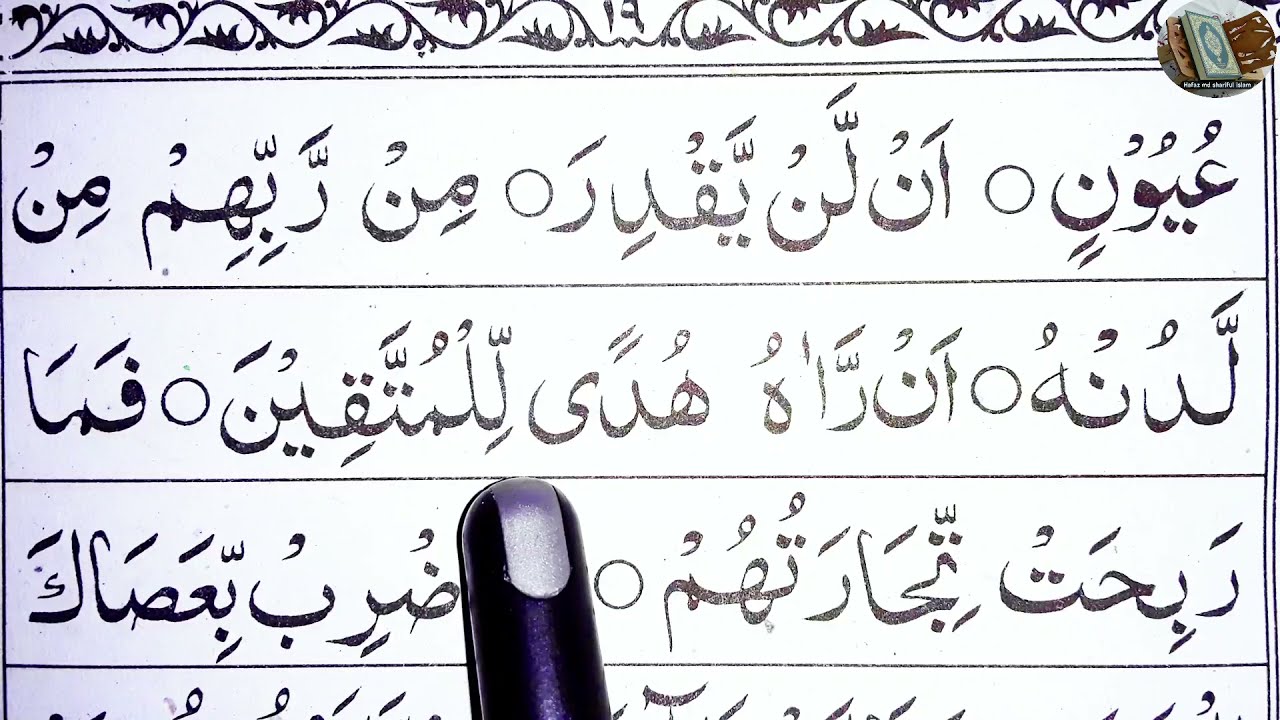 ١٩
Hafaz md shariful islam
عُيُوْنٍ ○ اَنْ لَّنْ يَّقْدِرَ ○ مِنْ رَّبِّهِمْ مِنْ
لَّدُنْهُ ○ اَنْ رَّاٰهُ هُدًى لِّلْمُتَّقِيْنَ ○ فَمَا
رَبِحَتْ تِّجَارَتُهُمْ ○ ضْرِبْ بِّعَصَاكَ